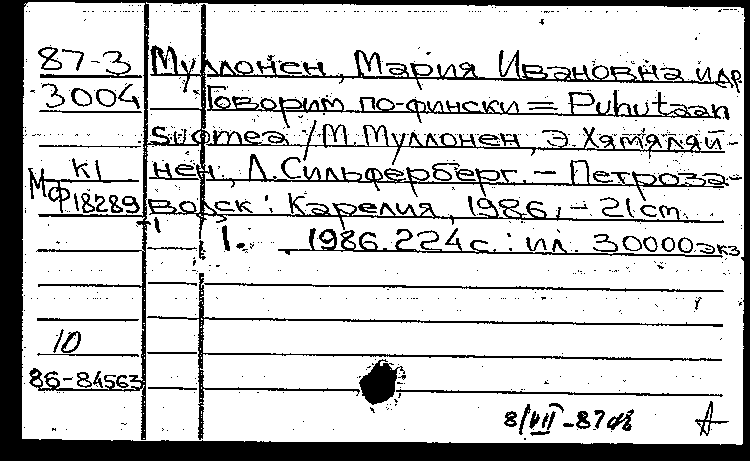 87-3 Муллонен, Мария Ивановна и др
3004 Говорим по-фински = Puhutaan
suomea / М. Муллонен, Э. Хямяляй-
К1 нен, Л. Сильферберг. – Петроза-
МФ 18289 водск : Карелия, 1986, – 21 см.
-1 1. 1986. 224 с. : ил. 30000 экз
10
86-84563
8/VII-87